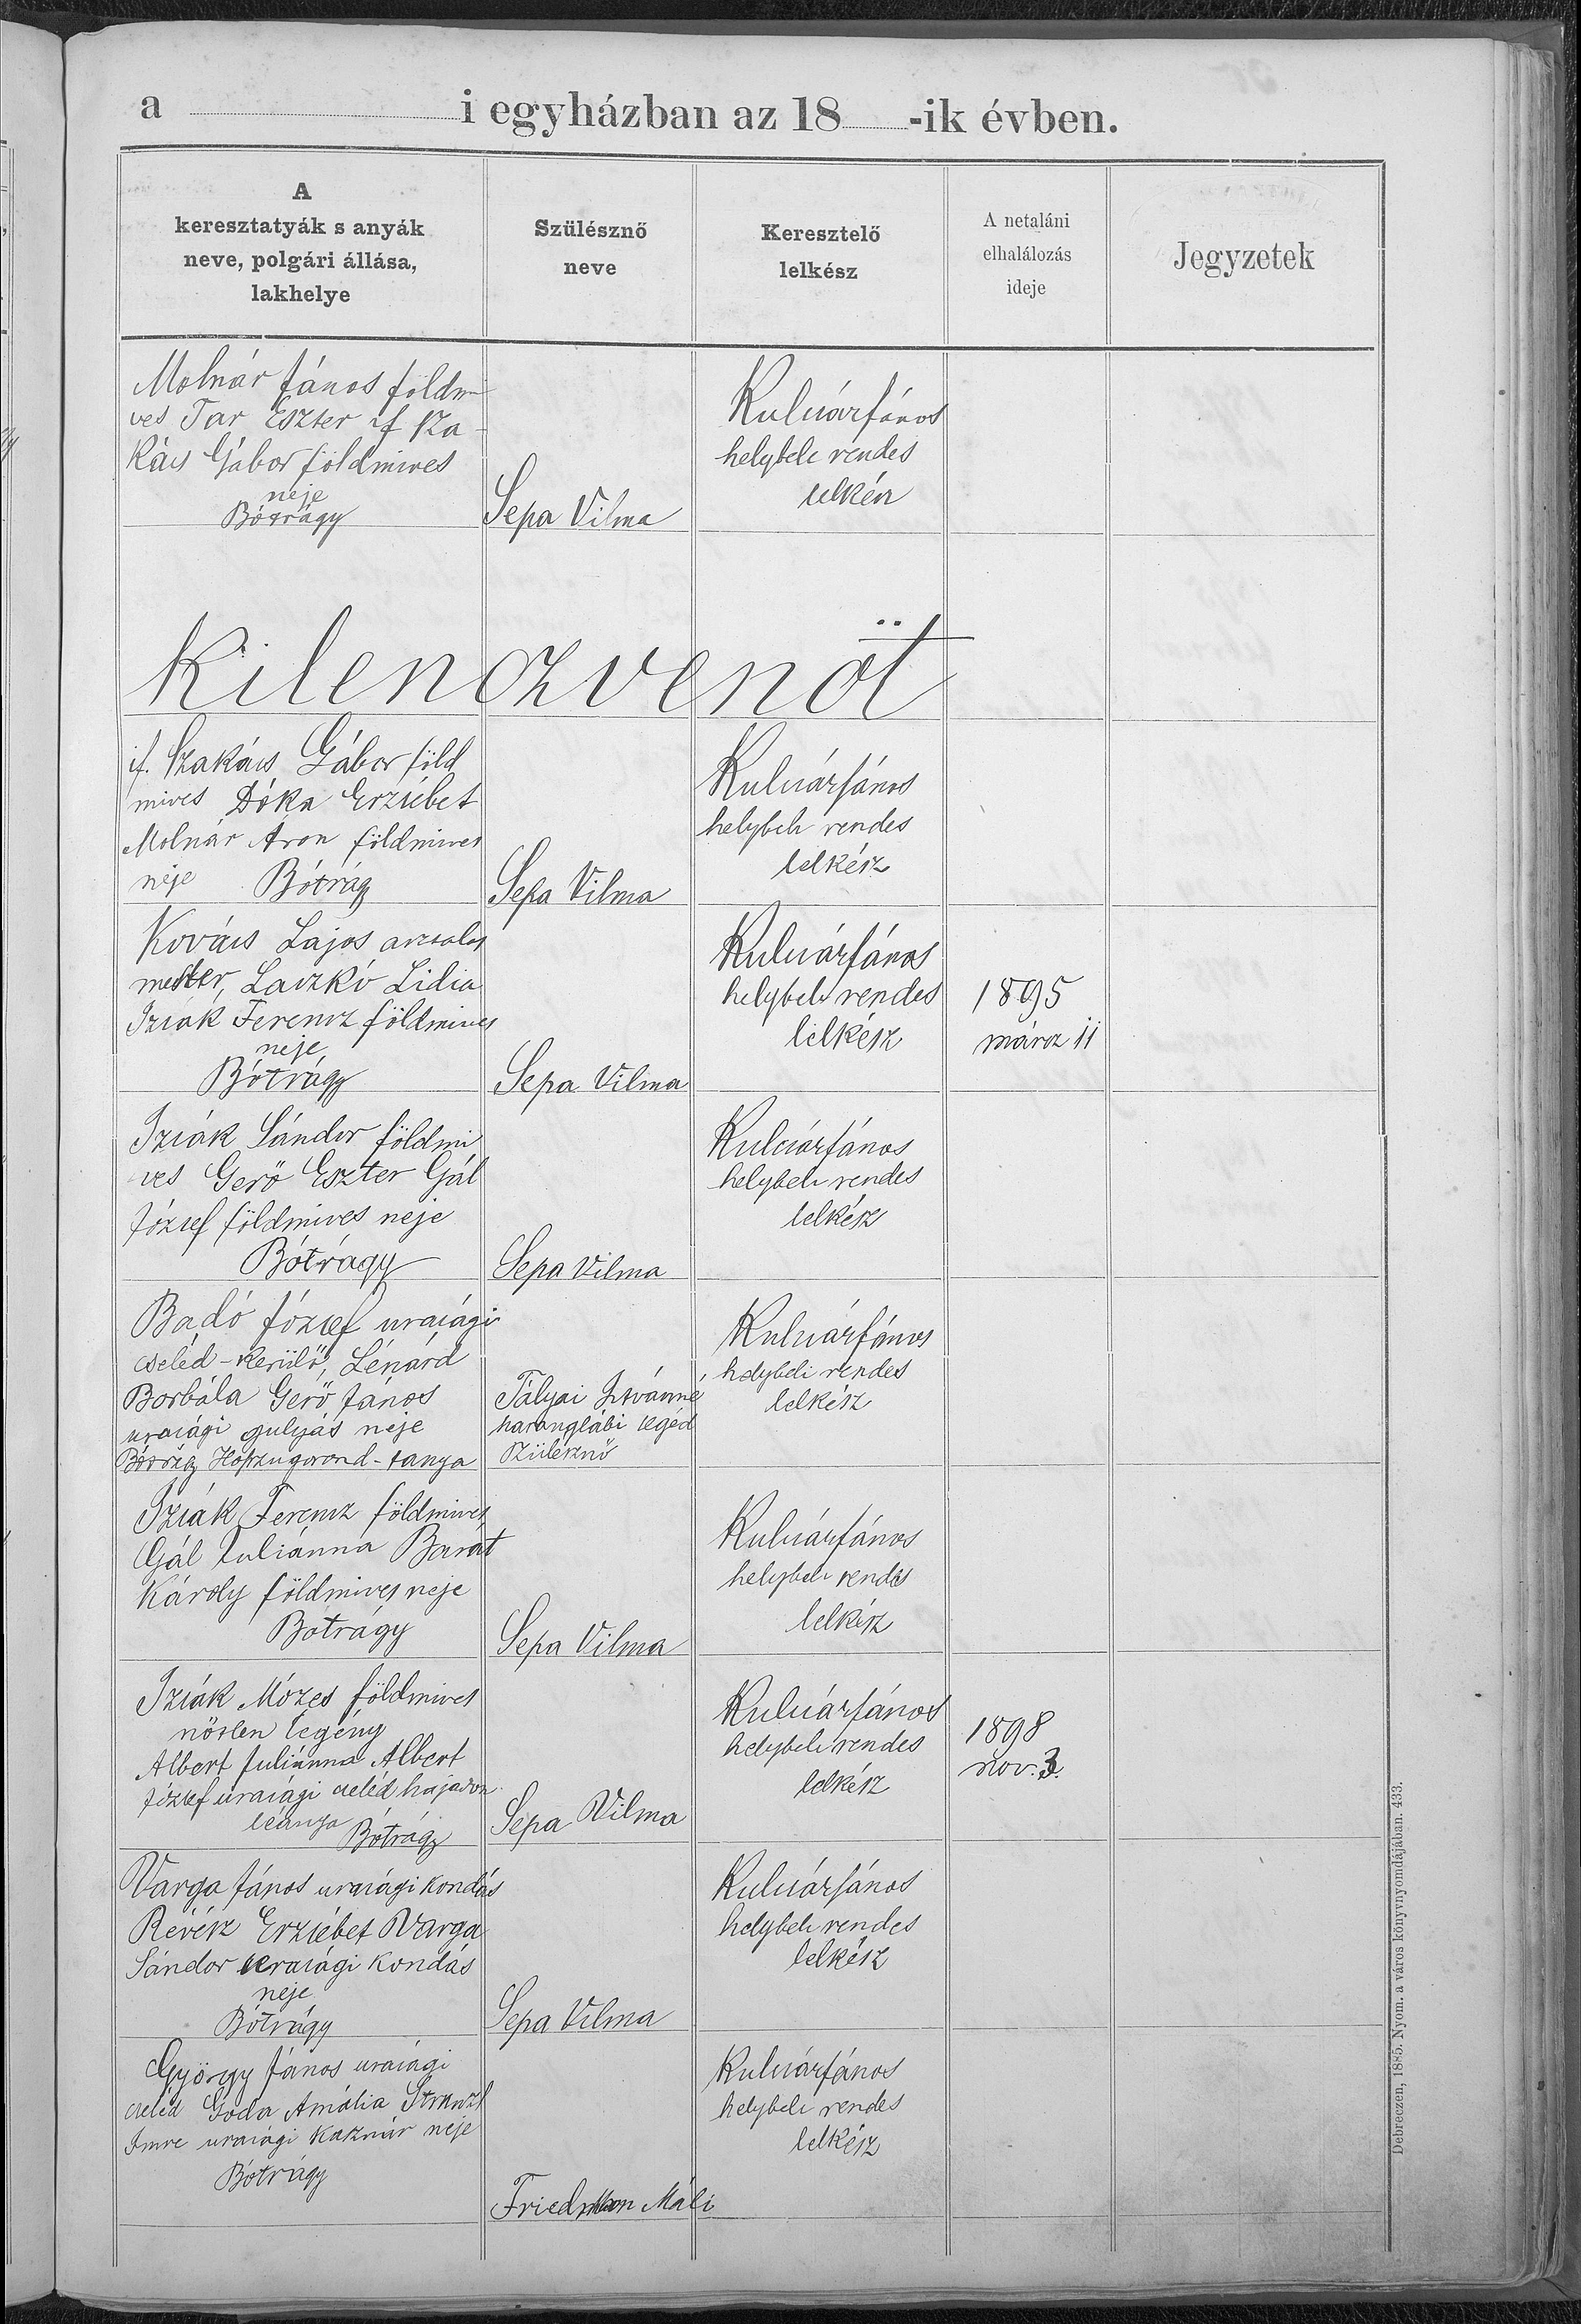 a i egyházban az 18 -ik évben.
A
keresztatyák s anyák
neve, polgári állása,
lakhelye
Szülésznő
neve
Keresztelő
lelkész
A netaláni
elhalálozás
ideje
Jegyzetek
Molnár János földmi
ves Tar Eszter if Sza-
kács Gábor földmives
neje
Bótrágy
Sepa Vilma
Kulcsár János
helybeli rendes
lelkész
Kilenczvenöt
if. Szakács Gábor föld
mives Dóka Erzsébet
Molnár Áron földmives
neje Bótrágy
Sepa Vilma
Kulcsár János
helybeli rendes
lelkész
Kovács Lajos asztalos
mester, Laczkó Lidia
Izsák Ferencz földmives
neje
Bótrágy
Sepa Vilma
Kulcsár János
helybeli rendes
lelkész
1895
márcz 11
Izsák Sándor földmi
ves Gerő Eszter Gál
József földmives neje
Bótrágy
Sepa Vilma
Kulcsár János
helybeli rendes
lelkész
Badó József urasági
cseléd-kerülő, Lénárd
Borbála Gerő János
urasági gulyás neje
Bótrágy Hoszugorond-tanya
Tályai Istvánné
harangläbi segéd
szülésznő
Kulcsár János
helybeli rendes
lelkész
Izsák Ferencz földmives
Gál Juliánna Barát
Károly földmives neje
Bótrágy
Sepa Vilma
Kulcsár János
helybeli rendes
lelkész
Izsák Mózes földmives
nőtlen legény
Albert Juliánna Albert
József urasági cseléd hajadon
leánya Bótrágy
Sepa Vilma
Kulcsár János
helybeli rendes
lelkész
1898
nov. 3.
Varga János urasági kondás
Révész Erzsébet Varga
Sándor urasági kondás
neje
Bótrágy
Sepa Vilma
Kulcsár János
helybeli rendes
lelkész
György János urasági
cseléd Góda Amália
Imre urasági kasznár neje
Bótrágy
Friedman Máli
Kulcsár János
helybeli rendes
lelkész
Debreczen, 1885. Nyom. a város könyvnyomdájában. 433.